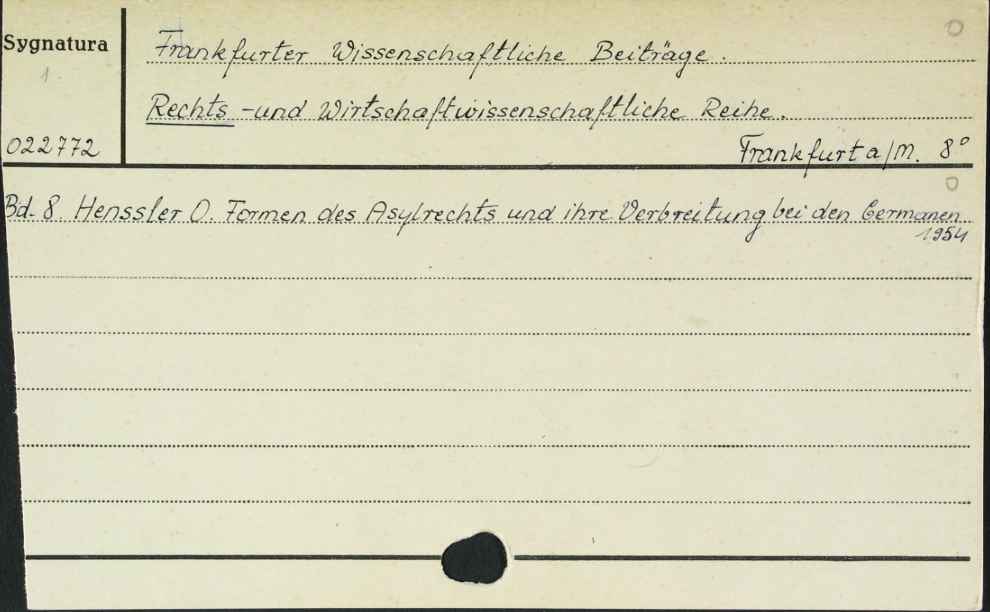 Sygnatura
1
022772
Frankfurter Wissenschaftliche Beiträge.
Rechts -und Wirtschaftwissenschaftliche Reihe.
Frankfurt a/M. 8°
Bd. 8 Henssler O. Formen des Asylrechts und ihre Verbreitung bei den Germanen
1954